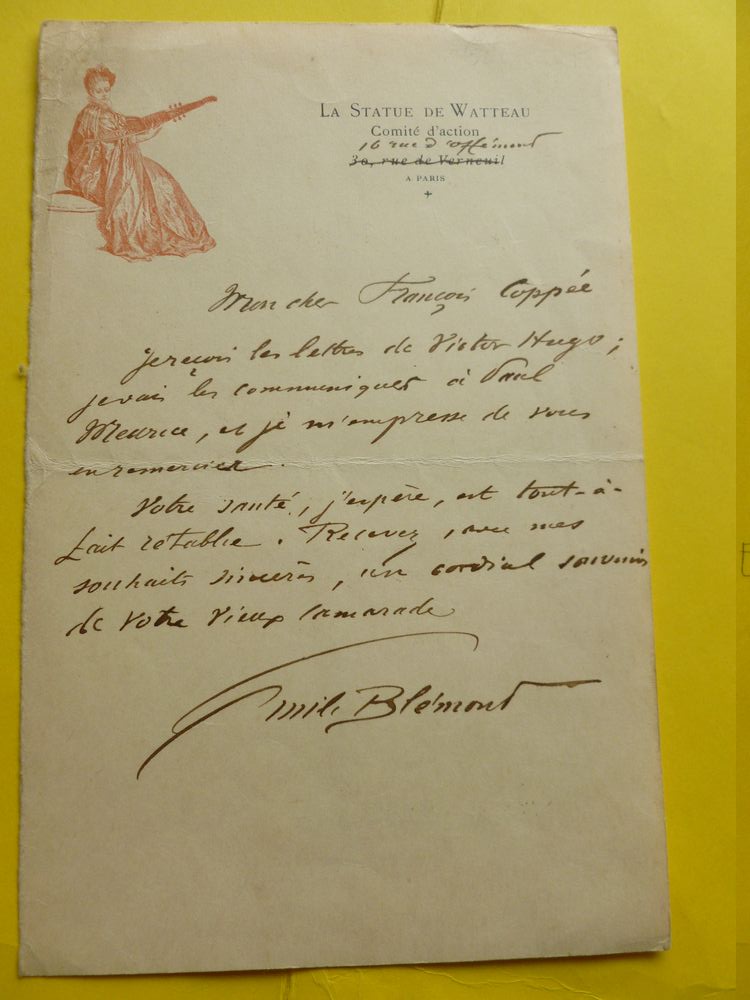 LA STATUE DE WATTEAU
Comité d'action
16 rue d'Offémont
30, rue de Verneuil
A PARIS
Mon cher François Coppée
Je reçois les lettres de Victor Hugo ;
je vais les communiquer à Paul
Meurice, et je m'empresse de vous
en remercier.
Votre santé, j'espère, est tout-à-
fait rétablie. Recevez, avec mes
souhaits sincères, un cordial souvenir
de votre vieux camarade
Emile Blémont